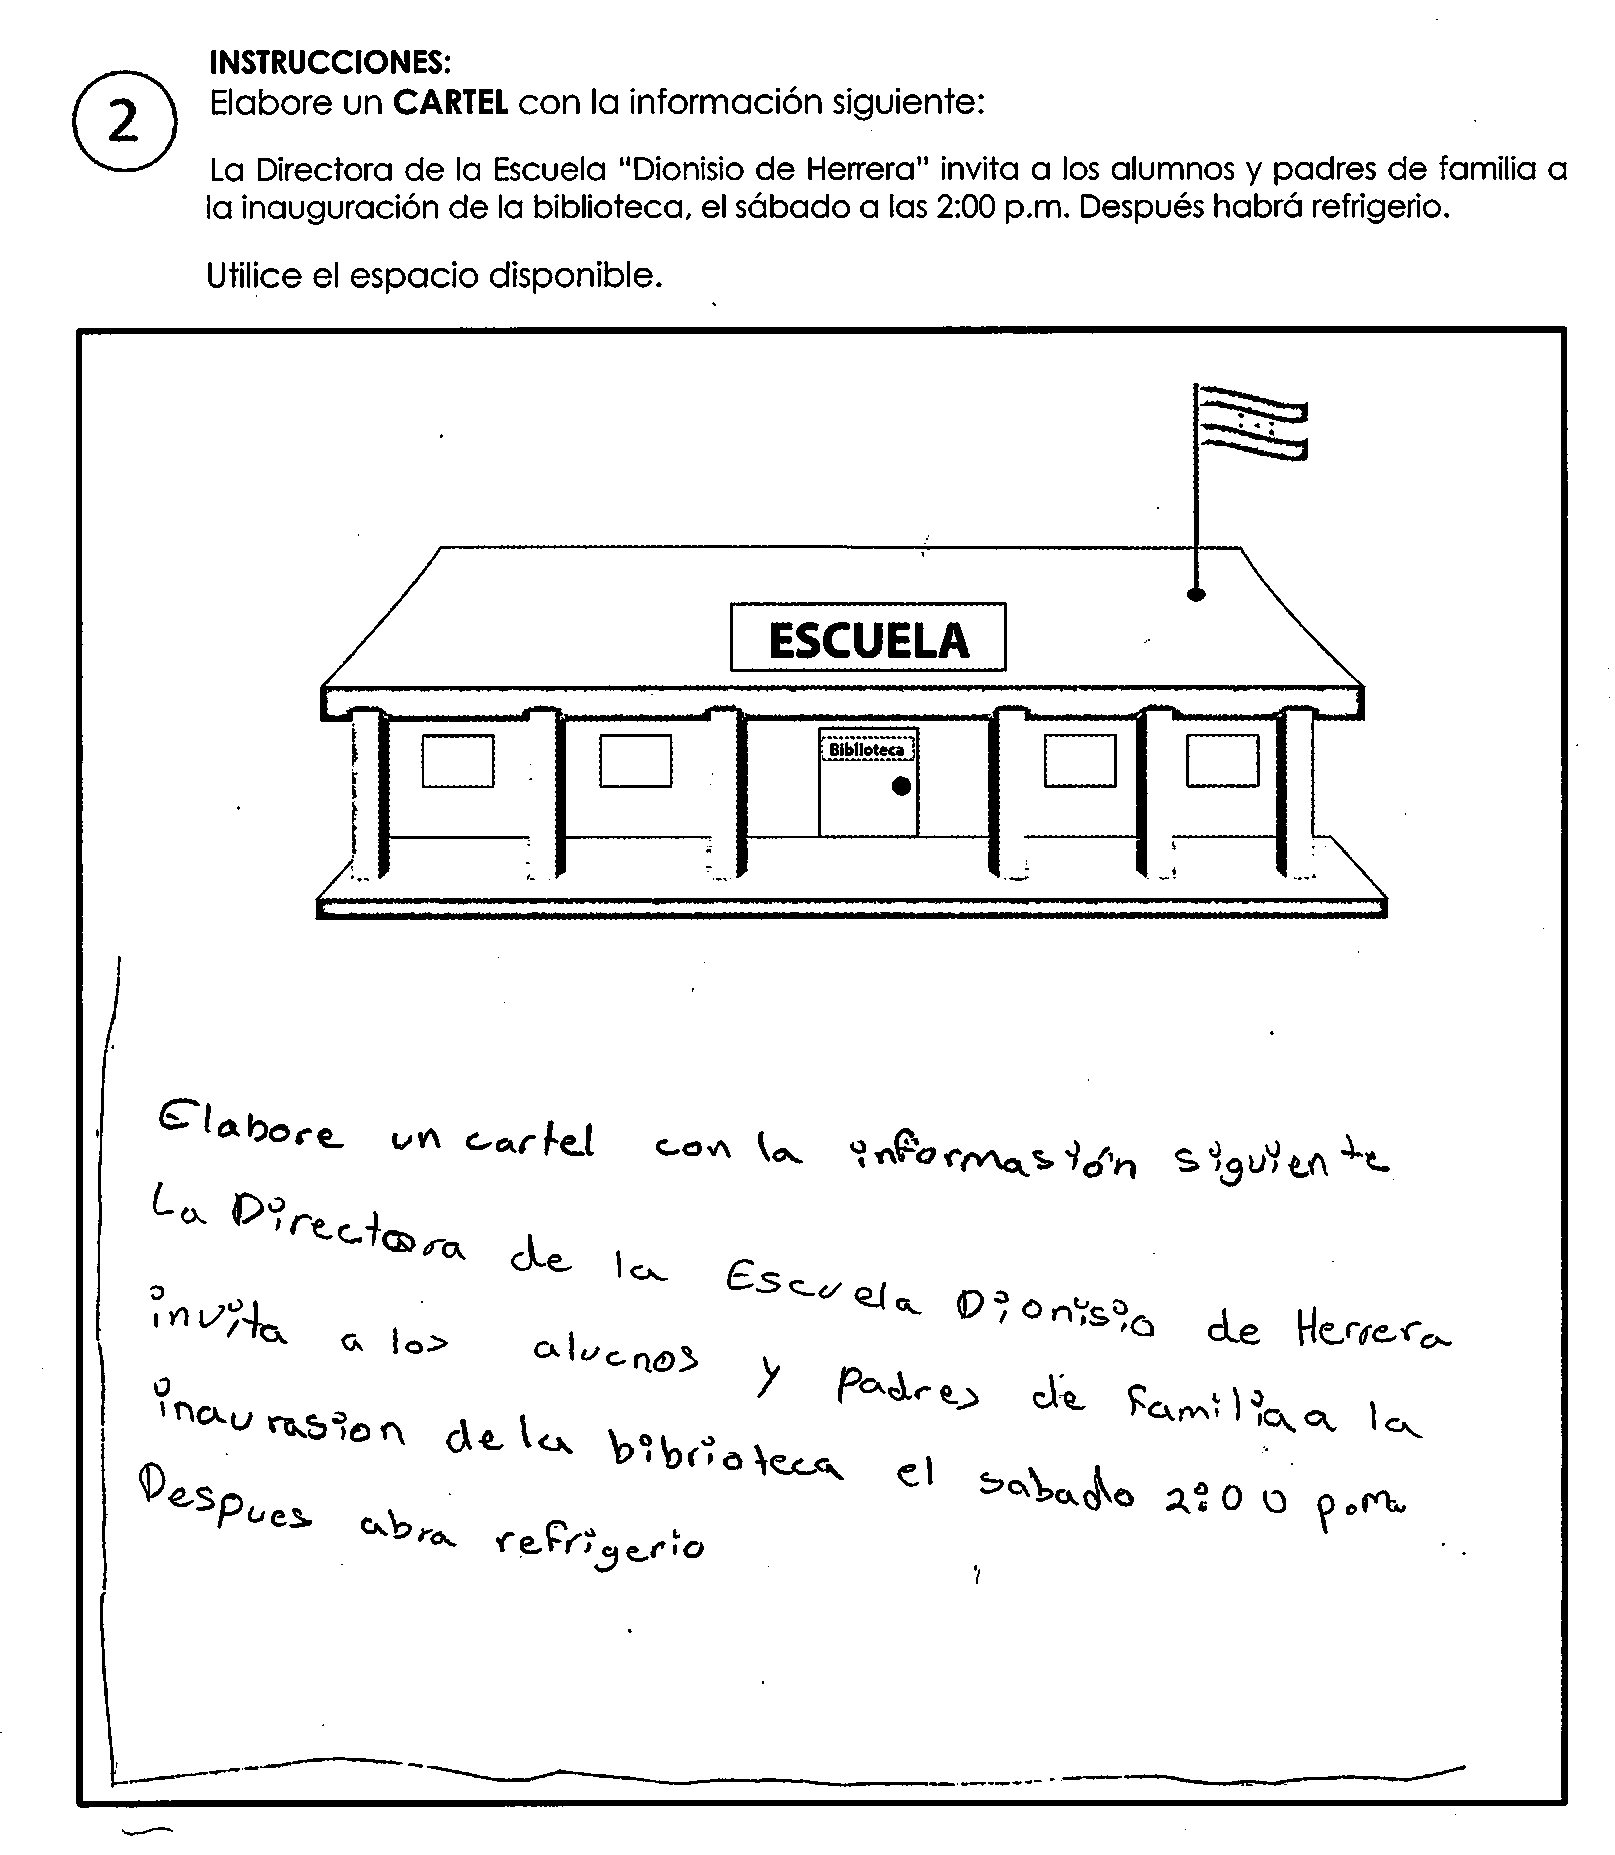 INSTRUCCIONES:
2
Elabore un CARTEL con la información siguiente:
La Directora de la Escuela "Dionisio de Herrera" invita a los alumnos y padres de familia a
la inauguración de la biblioteca, el sábado a las 2:00 p.m. Después habrá refrigerio.
Utilice el espacio disponible.
ESCUELA
Biblioteca
Elabore un cartel con la informasión siguiente
La Directora de la Escuela Dionisio de Herrera
invita a los aluenos y padres de familia a la
inaurasion de la bibrioteca el sabado 2:00 p.m
Despues abra refrigerio